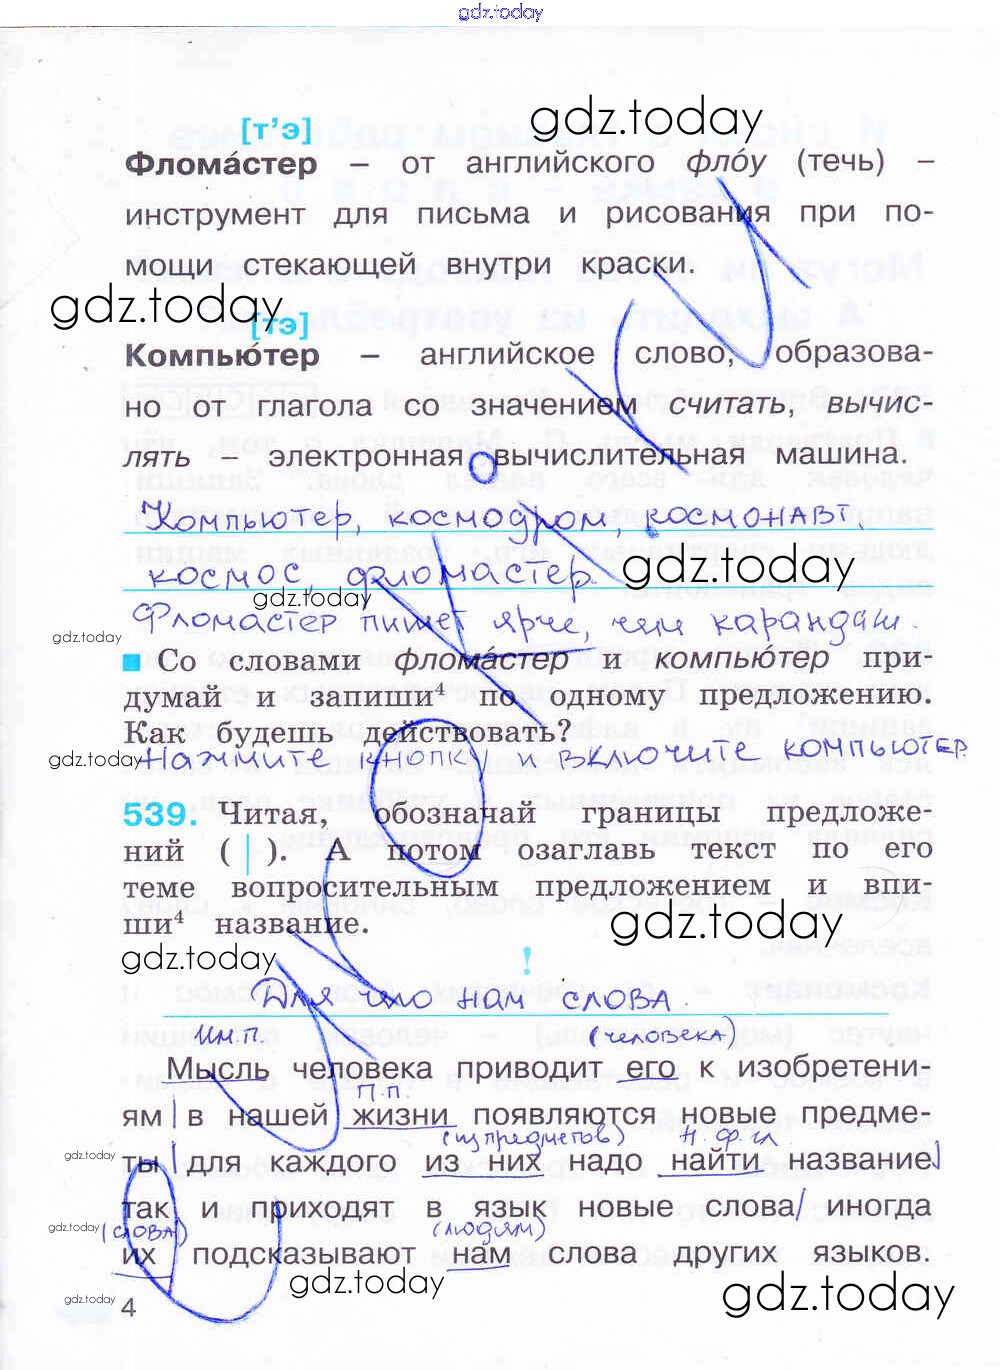 gdz.today
[т’э]
gdz.today
Флома́стер – от английского фло́у (течь) –
инструмент для письма и рисования при по-
мощи стекающей внутри краски.
gdz.today
[тэ]
Компью́тер – английское слово, образова-
но от глагола со значением считать, вычис-
лять – электронная вычислительная машина.
Компьютер, космодром, космонавт,
космос, фломастер.
gdz.today
gdz.today
Фломастер пишет ярче, чем карандаш.
gdz.today
Со словами флома́стер и компью́тер при-
думай и запиши⁴ по одному предложению.
Как будешь действовать?
gdz.today
Нажмите кнопку и включите компьютер
539. Читая, обозначай границы предложе-
ний ( | ). А потом озаглавь текст по его
теме вопросительным предложением и впи-
ши⁴ название.
gdz.today
gdz.today
!
Для что нам слова
Им.п. (человека)
Мысль человека приводит его к изобретени-
П.п.
ям | в нашей жизни появляются новые предме-
(из предметов) Н.ф.гл
gdz.today
ты | для каждого из них надо найти название |
так и приходят в язык новые слова | иногда
gdz.today
(слова) (людям)
их подсказывают нам слова других языков.
gdz.today
gdz.today
gdz.today
4